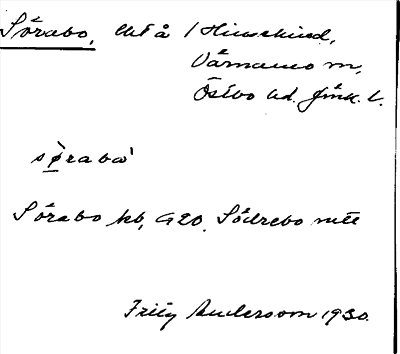 Sörabo, utå / Hinsekind,
Värnamo sn,
Östbo hd. Jönk. l.
sø̀rabo`
Sörabo kb, G20. Södrebo mtl
Fritz Andersson 1930.